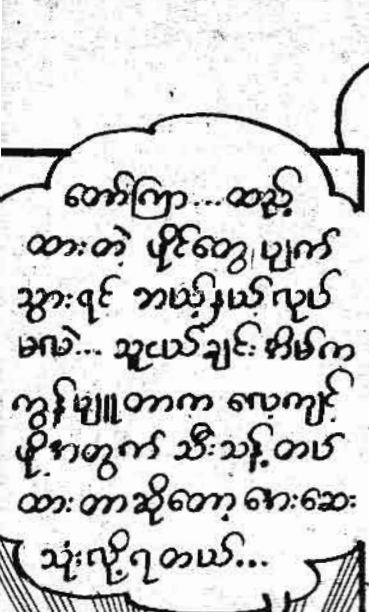 တော်ကြာ...ထည့်
ထားတဲ့ ဖိုင်တွေ ပျက်
သွားရင် ဘယ့်နှယ်လုပ်
မလဲ... သူငယ်ချင်း အိမ်က
ကွန်ပျူတာက လေ့ကျင့်
ဖို့အတွက် သီးသန့်တပ်
ထားတာဆိုတော့ အေးဆေး
သုံးလို့ရတယ်...